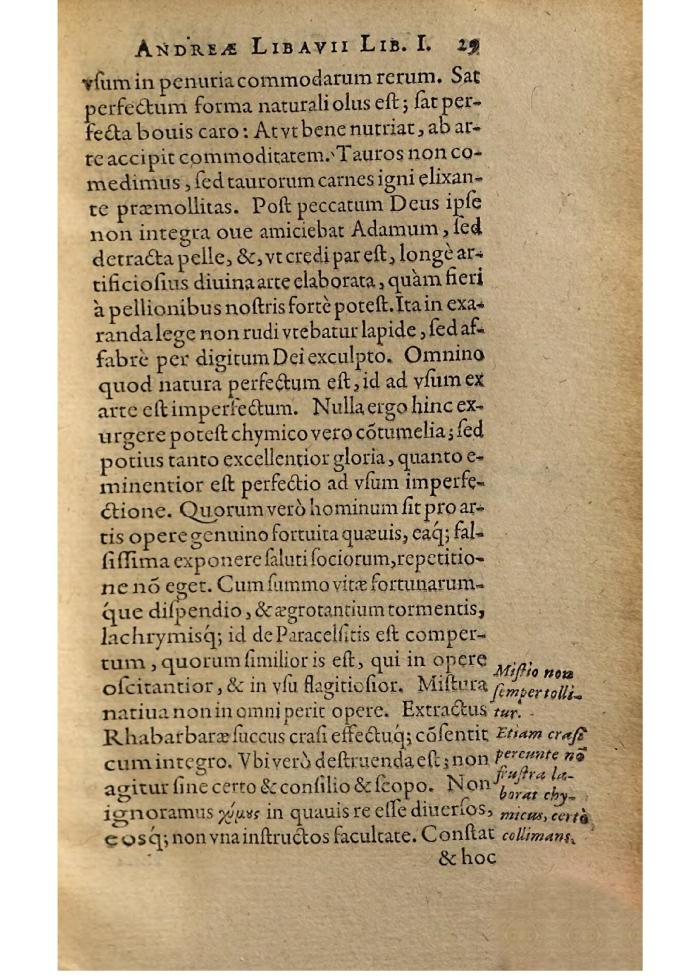 ANDREÆ LIBAVII LIB. I. 29
vſum in penuria commodarum rerum. Sat
perfectum forma naturali olus eſt; ſat per-
fecta bouis caro: At vt bene nutriat, ab ar-
te accipit commoditatem. Tauros non co-
medimus, ſed taurorum carnes igni elixan-
te præmollitas. Poſt peccatum Deus ipſe
non integra oue amiciebat Adamum, ſed
detracta pelle, &, vt credi par eſt, longè ar-
tificioſius diuina arte elaborata, quàm fieri
à pellionibus noſtris fortè poteſt. Ita in exa-
randa lege non rudi vtebatur lapide, ſed af-
fabrè per digitum Dei exculpto. Omnino
quod natura perfectum eſt, id ad vſum ex
arte eſt imperfectum. Nulla ergo hinc ex-
urgere poteſt chymico vero cōtumelia; ſed
potius tanto excellentior gloria, quanto e-
minentior eſt perfectio ad vſum imperfe-
ctione. Quorum verò hominum ſit pro ar-
tis opere genuino fortuita quæuis, eaq́; fal-
ſiſſima exponere ſaluti ſociorum, repetitio-
ne nō eget. Cum ſummo vitæ fortunarum-
q́ue diſpendio, & ægrotantium tormentis,
lachrymisq́; id de Paracelſitis eſt comper-
tum, quorum ſimilior is eſt, qui in opere
oſcitantior, & in vſu flagitioſior. Miſtura
natiua non in omni perit opere. Extractus
Rhabarbaræ ſuccus craſi effectuq́; cōſentit
cum integro. Vbi verò deſtruenda eſt; non
agitur ſine certo & conſilio & ſcopo. Non
ignoramus χύμους in quauis re eſſe diuerſos,
eosq́; non vna inſtructos facultate. Conſtat
& hoc
Miſtio non
ſemper tolli-
tur.
Etiam craſi
pereunte nō
fruſtra la-
borat chy-
micus, certò
collimans.